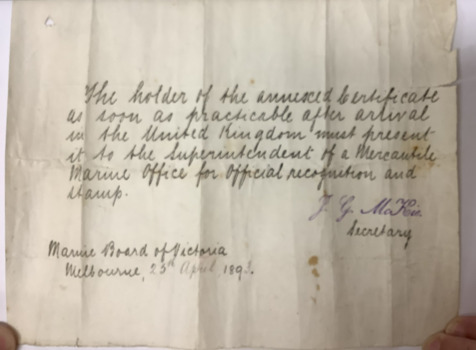 The holder of the annexed Certificate
as soon as practicable after arrival
in the United Kingdom must present
it to the Superintendent of a Mercantile
Marine Office for Official recognition and
stamp.
J. G. McKie
Secretary
Marine Board of Victoria
Melbourne, 25th April, 189